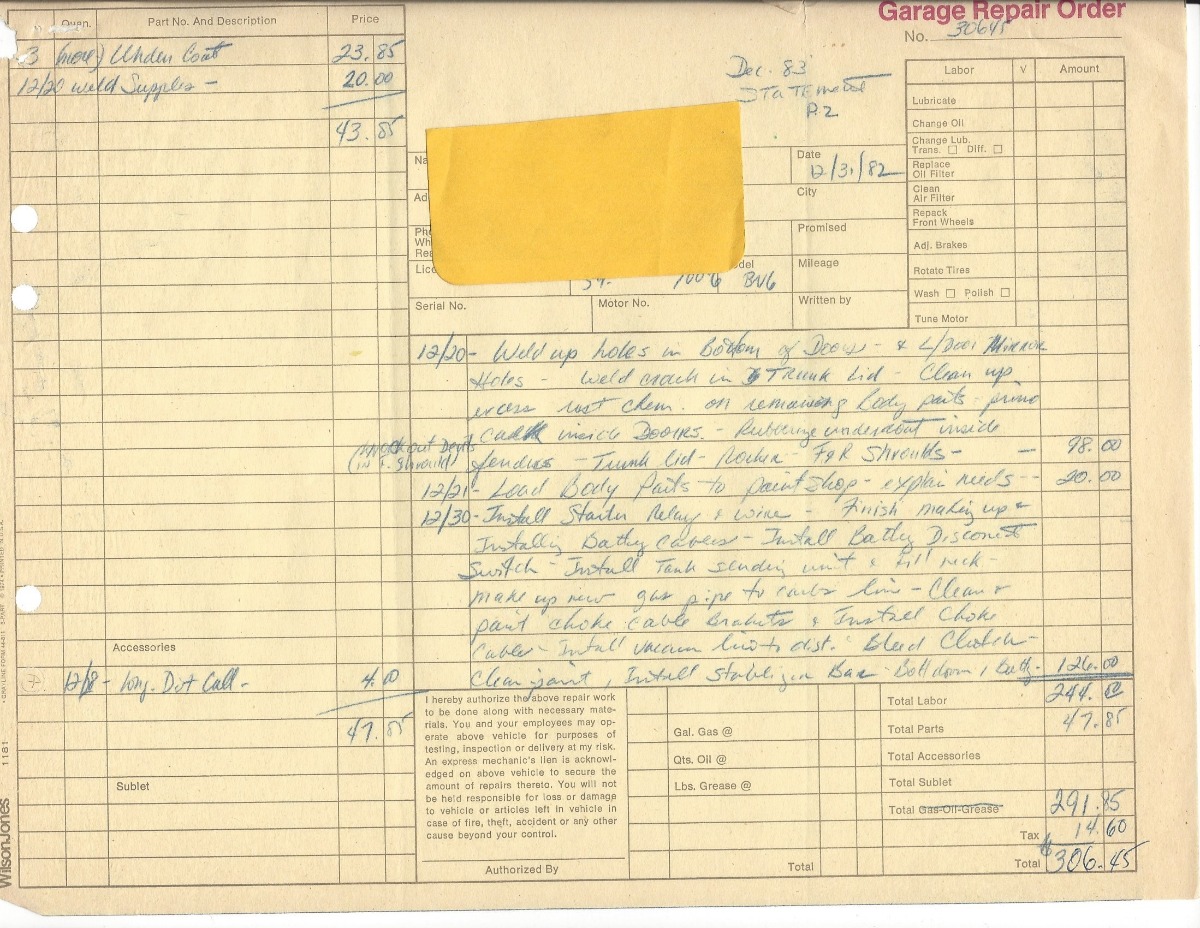 Garage Repair Order
No. 30645
Quan. Part No. And Description Price
3 (more) Under Coat 23.85
12/20 weld Supplies - 20.00
43.85
Dec. 83
STATEment
P.2
Date
12/31/82
City
Promised
Mileage
BN6
Serial No. Motor No. Written by
Labor √ Amount
Lubricate
Change Oil
Change Lub.
Trans. □ Diff. □
Replace
Oil Filter
Clean
Air Filter
Repack
Front Wheels
Adj. Brakes
Rotato Tires
Wash □ Polish □
Tune Motor
12/20- Weld up holes in Bottom of Doors - & L/Door Mirror
Holes - weld crack in Trunk Lid - Clean up
excess rust chem. on remaining body parts - prime
inside Doors. - Rubberize undercoat inside
(Knock out Dents
(in F. Shrould) fenders - Trunk lid - Rocker - F&R Shroulds - - 98.00
12/21- Load Body Parts to paint Shop - explain needs -- 20.00
12/30- Install Starter Relay & wire - Finish making up &
Installing Battery cables - Install Battery Disconect
Switch - Install Tank sending unit & fill neck -
make up new gas pipe to carbs line - Clean &
paint choke cable Brakets & Install Choke
Cable - Install vacuum line to dist. Bleed Clutch -
Clean, paint, Install Stabilizer Bar - 126.00
Accessories
12/8 - Long. Dist Call. - 4.00
47.85
Sublet
I hereby authorize the above repair work
to be done along with necessary mate-
rials. You and your employees may op-
erate above vehicle for purposes of
testing, inspection or delivery at my risk.
An express mechanic's lien is acknowl-
edged on above vehicle to secure the
amount of repairs thereto. You will not
be held responsible for loss or damage
to vehicle or articles left in vehicle in
case of fire, theft, accident or any other
cause beyond your control.
Authorized By
Gal. Gas @
Qts. Oil @
Lbs. Grease @
Total
Total Labor 244.00
Total Parts 47.85
Total Accessories
Total Sublet
Total Gas-Oil-Grease 291.85
Tax 14.60
Total $306.45
WilsonJones
1181